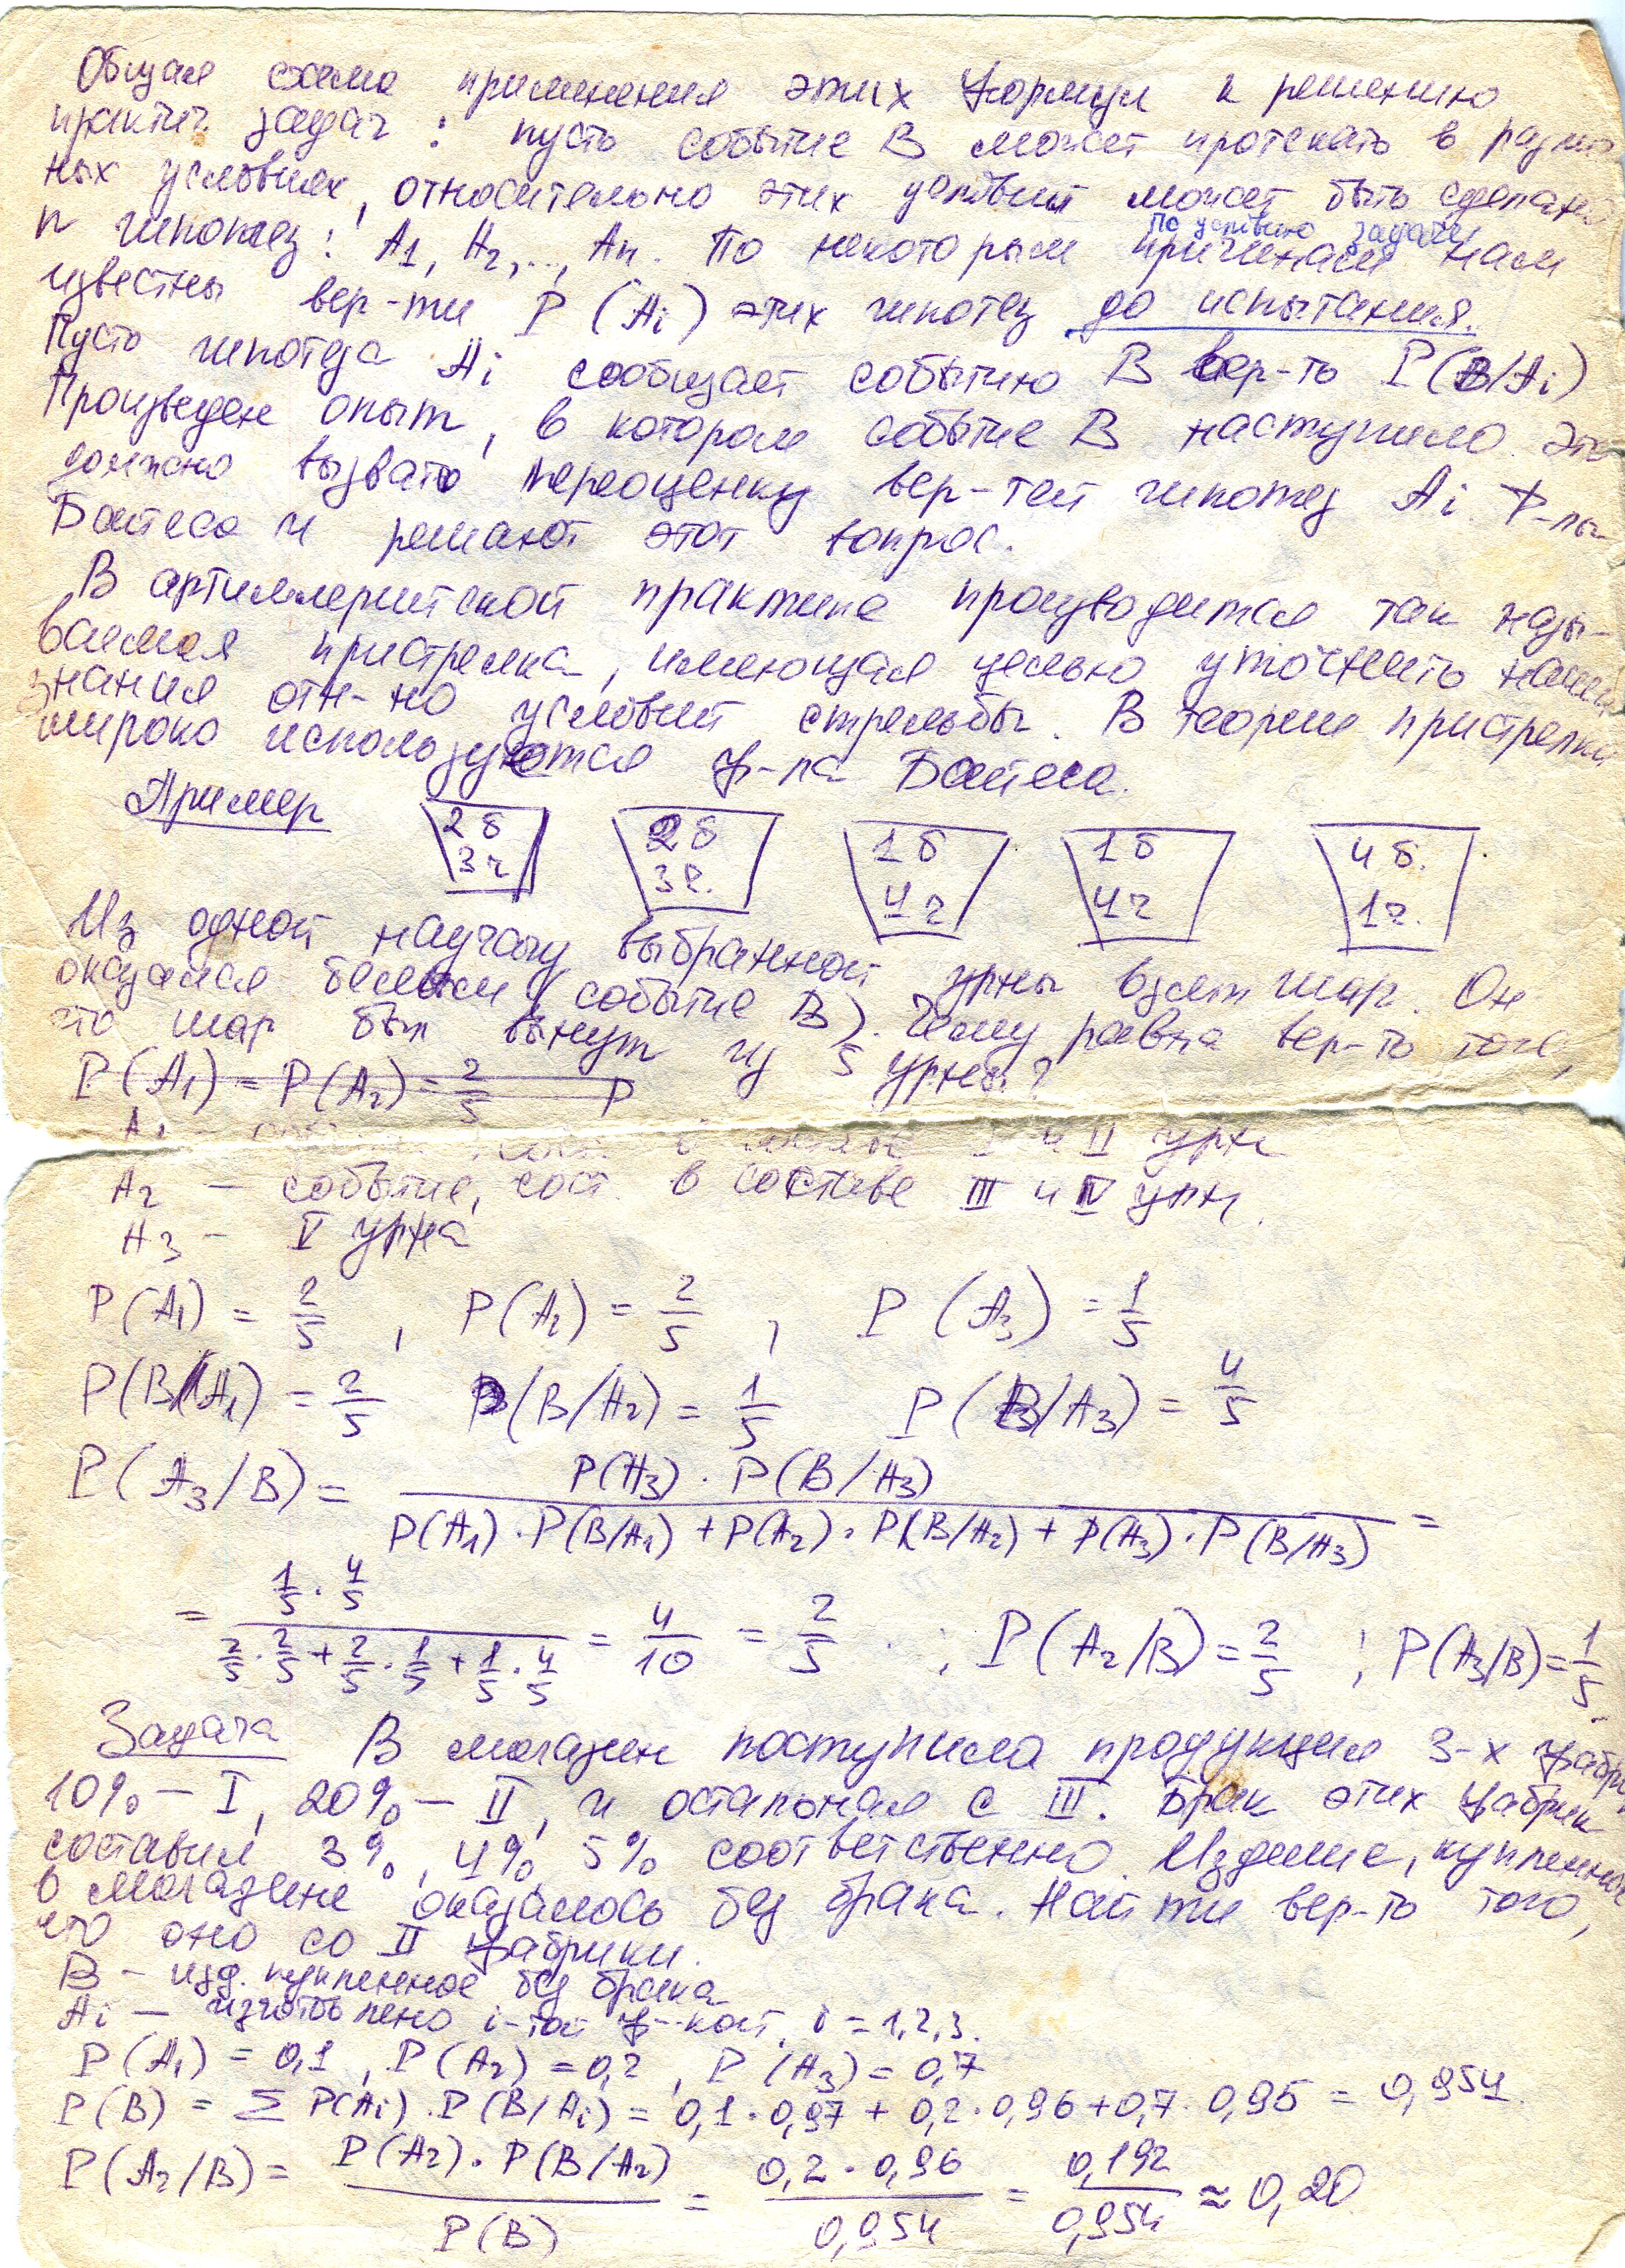 Общая схема применения этих формул к решению
практич. задач: пусть событие В может протекать в различ
ных условиях, относительно этих условий может быть сделано
n гипотез: A1, A2,..., An. По некоторым причинам нам
по условию задачи
известны вер-ти P(Ai) этих гипотез до испытания.
Пусть гипотеза Ai сообщает событию В вер-ть P(B/Ai)
Произведен опыт, в котором событие В наступило. Это
должно вызвать переоценку вер-тей гипотез Ai. Ф-лы
Байеса и решают этот вопрос.
В артиллерийской практике производится так назы-
ваемая пристрелка, имеющая целью уточнить наши
знания отн-но условий стрельбы. В теории пристрелки
широко используются ф-ла Байеса.
Пример
2б 2б 1б 1б 4б.
3ч 3ч. 4ч 4ч 1ч.
Из одной наугад выбранной урны взят шар. Он
оказался белым (событие В). Чему равна вер-ть того,
что шар был вынут из 5 урны?
P(A1) = P(A2) = 2/5 P
I и II урн
A2 – событие, сост. в составе III и IV урн.
A3 – V урна
P(A1) = 2/5, P(A2) = 2/5, P(A3) = 1/5
P(B/A1) = 2/5 P(B/A2) = 1/5 P(B/A3) = 4/5
P(A3/B) = P(A3)·P(B/A3) / P(A1)·P(B/A1) + P(A2)·P(B/A2) + P(A3)·P(B/A3) =
= 1/5·4/5 / 2/5·2/5 + 2/5·1/5 + 1/5·4/5 = 4/10 = 2/5; P(A2/B) = 2/5; P(A3/B) = 1/5.
Задача В магазин поступила продукция 3-х фабри
10% – I, 20% – II, и остальная с III. Брак этих фабрик
составил 3%, 4%, 5% соответственно. Изделие, купленное
в магазине оказалось без брака. Найти вер-ть того,
что оно со II фабрики.
B – изд. купленное без брака
Ai – изготовлено i-той ф-кой, i = 1,2,3.
P(A1) = 0,1, P(A2) = 0,2, P(A3) = 0,7
P(B) = Σ P(Ai)·P(B/Ai) = 0,1·0,97 + 0,2·0,96 + 0,7·0,95 = 0,954.
P(A2/B) = P(A2)·P(B/A2) / P(B) = 0,2·0,96 / 0,954 = 0,192 / 0,954 ≈ 0,20